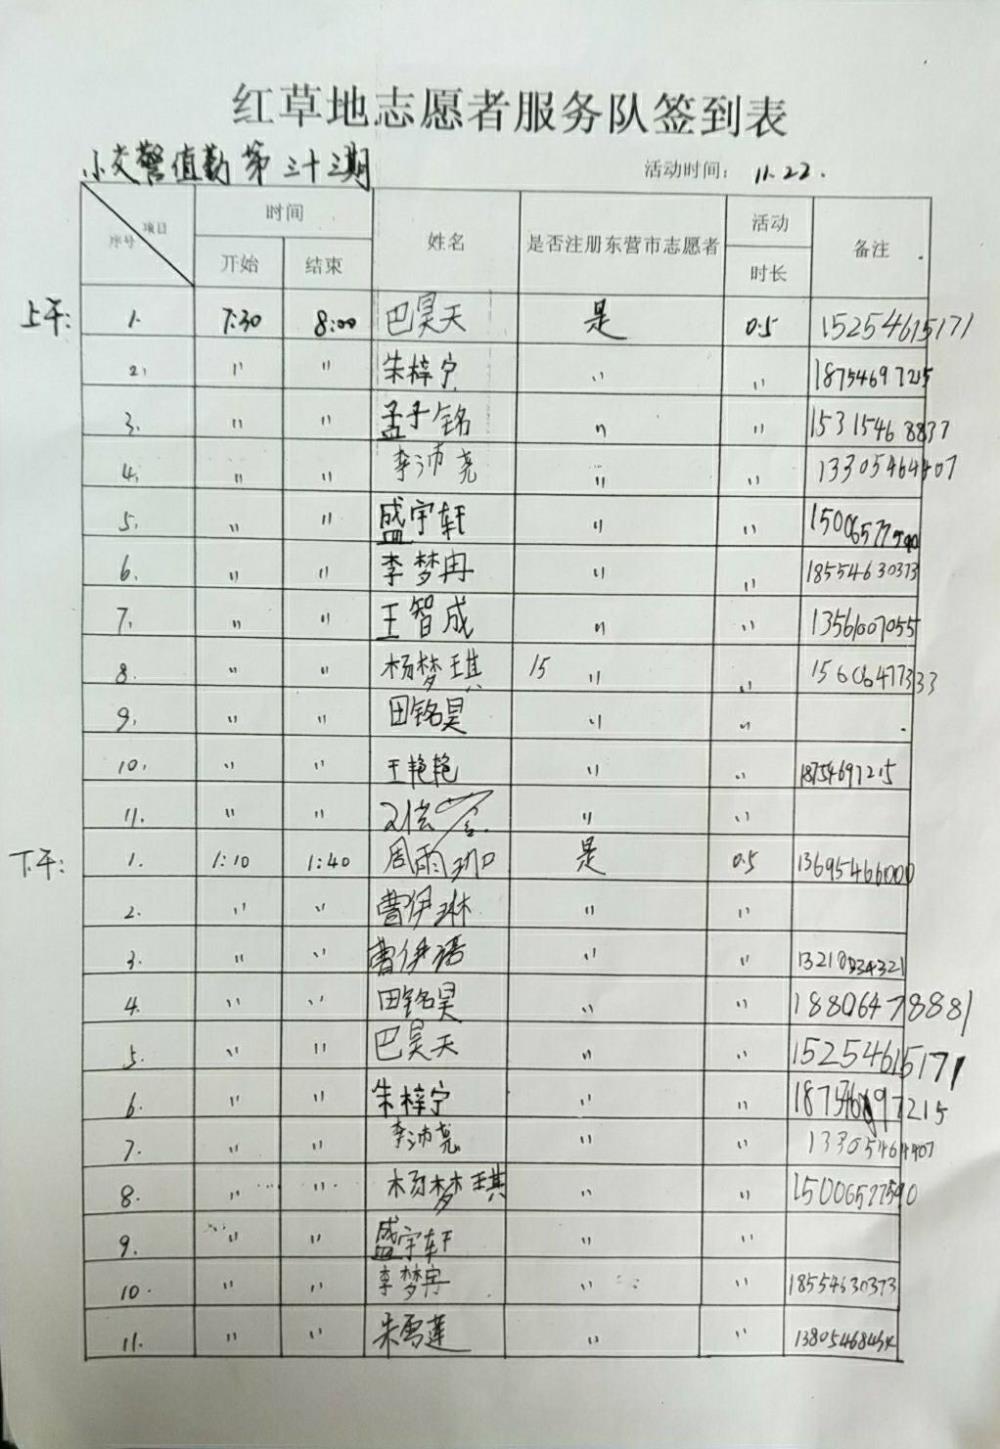 红草地志愿者服务队签到表
小交警值勤第三十三期 活动时间: 11.22.
项目 序号 时间 姓名 是否注册东营市志愿者 活动 备注
开始 结束 时长
上午: 1. 7:30 8:00 巴昊天 是 0.5 15254615171
2. 〃 〃 朱梓宁 〃 〃 18754697215
3. 〃 〃 孟子铭 〃 〃 15315468837
4. 〃 〃 李沛尧 〃 〃 13305464407
5. 〃 〃 盛宇轩 〃 〃 15006577590
6. 〃 〃 李梦冉 〃 〃 18554630373
7. 〃 〃 王智成 〃 〃 13561007055
8. 〃 〃 杨梦琪 15 〃 〃 15606477333
9. 〃 〃 田铭昊 〃 〃
10. 〃 〃 王艳艳 〃 〃 18754697215
11. 〃 〃 〃 〃
下午: 1. 1:10 1:40 周雨珈 是 0.5 13695466000
2. 〃 〃 曹伊琳 〃 〃
3. 〃 〃 曹伊诺 〃 〃
4. 〃 〃 田铭昊 〃 〃 18806478881
5. 〃 〃 巴昊天 〃 〃 15254615171
6. 〃 〃 朱梓宁 〃 〃
7. 〃 〃 李沛尧 〃 〃 13305464407
8. 〃 〃 杨梦琪 〃 〃 15006577590
9. 〃 〃 盛宇轩 〃 〃
10. 〃 〃 李梦冉 〃 〃 18554630373
11. 〃 〃 朱雪莲 〃 〃